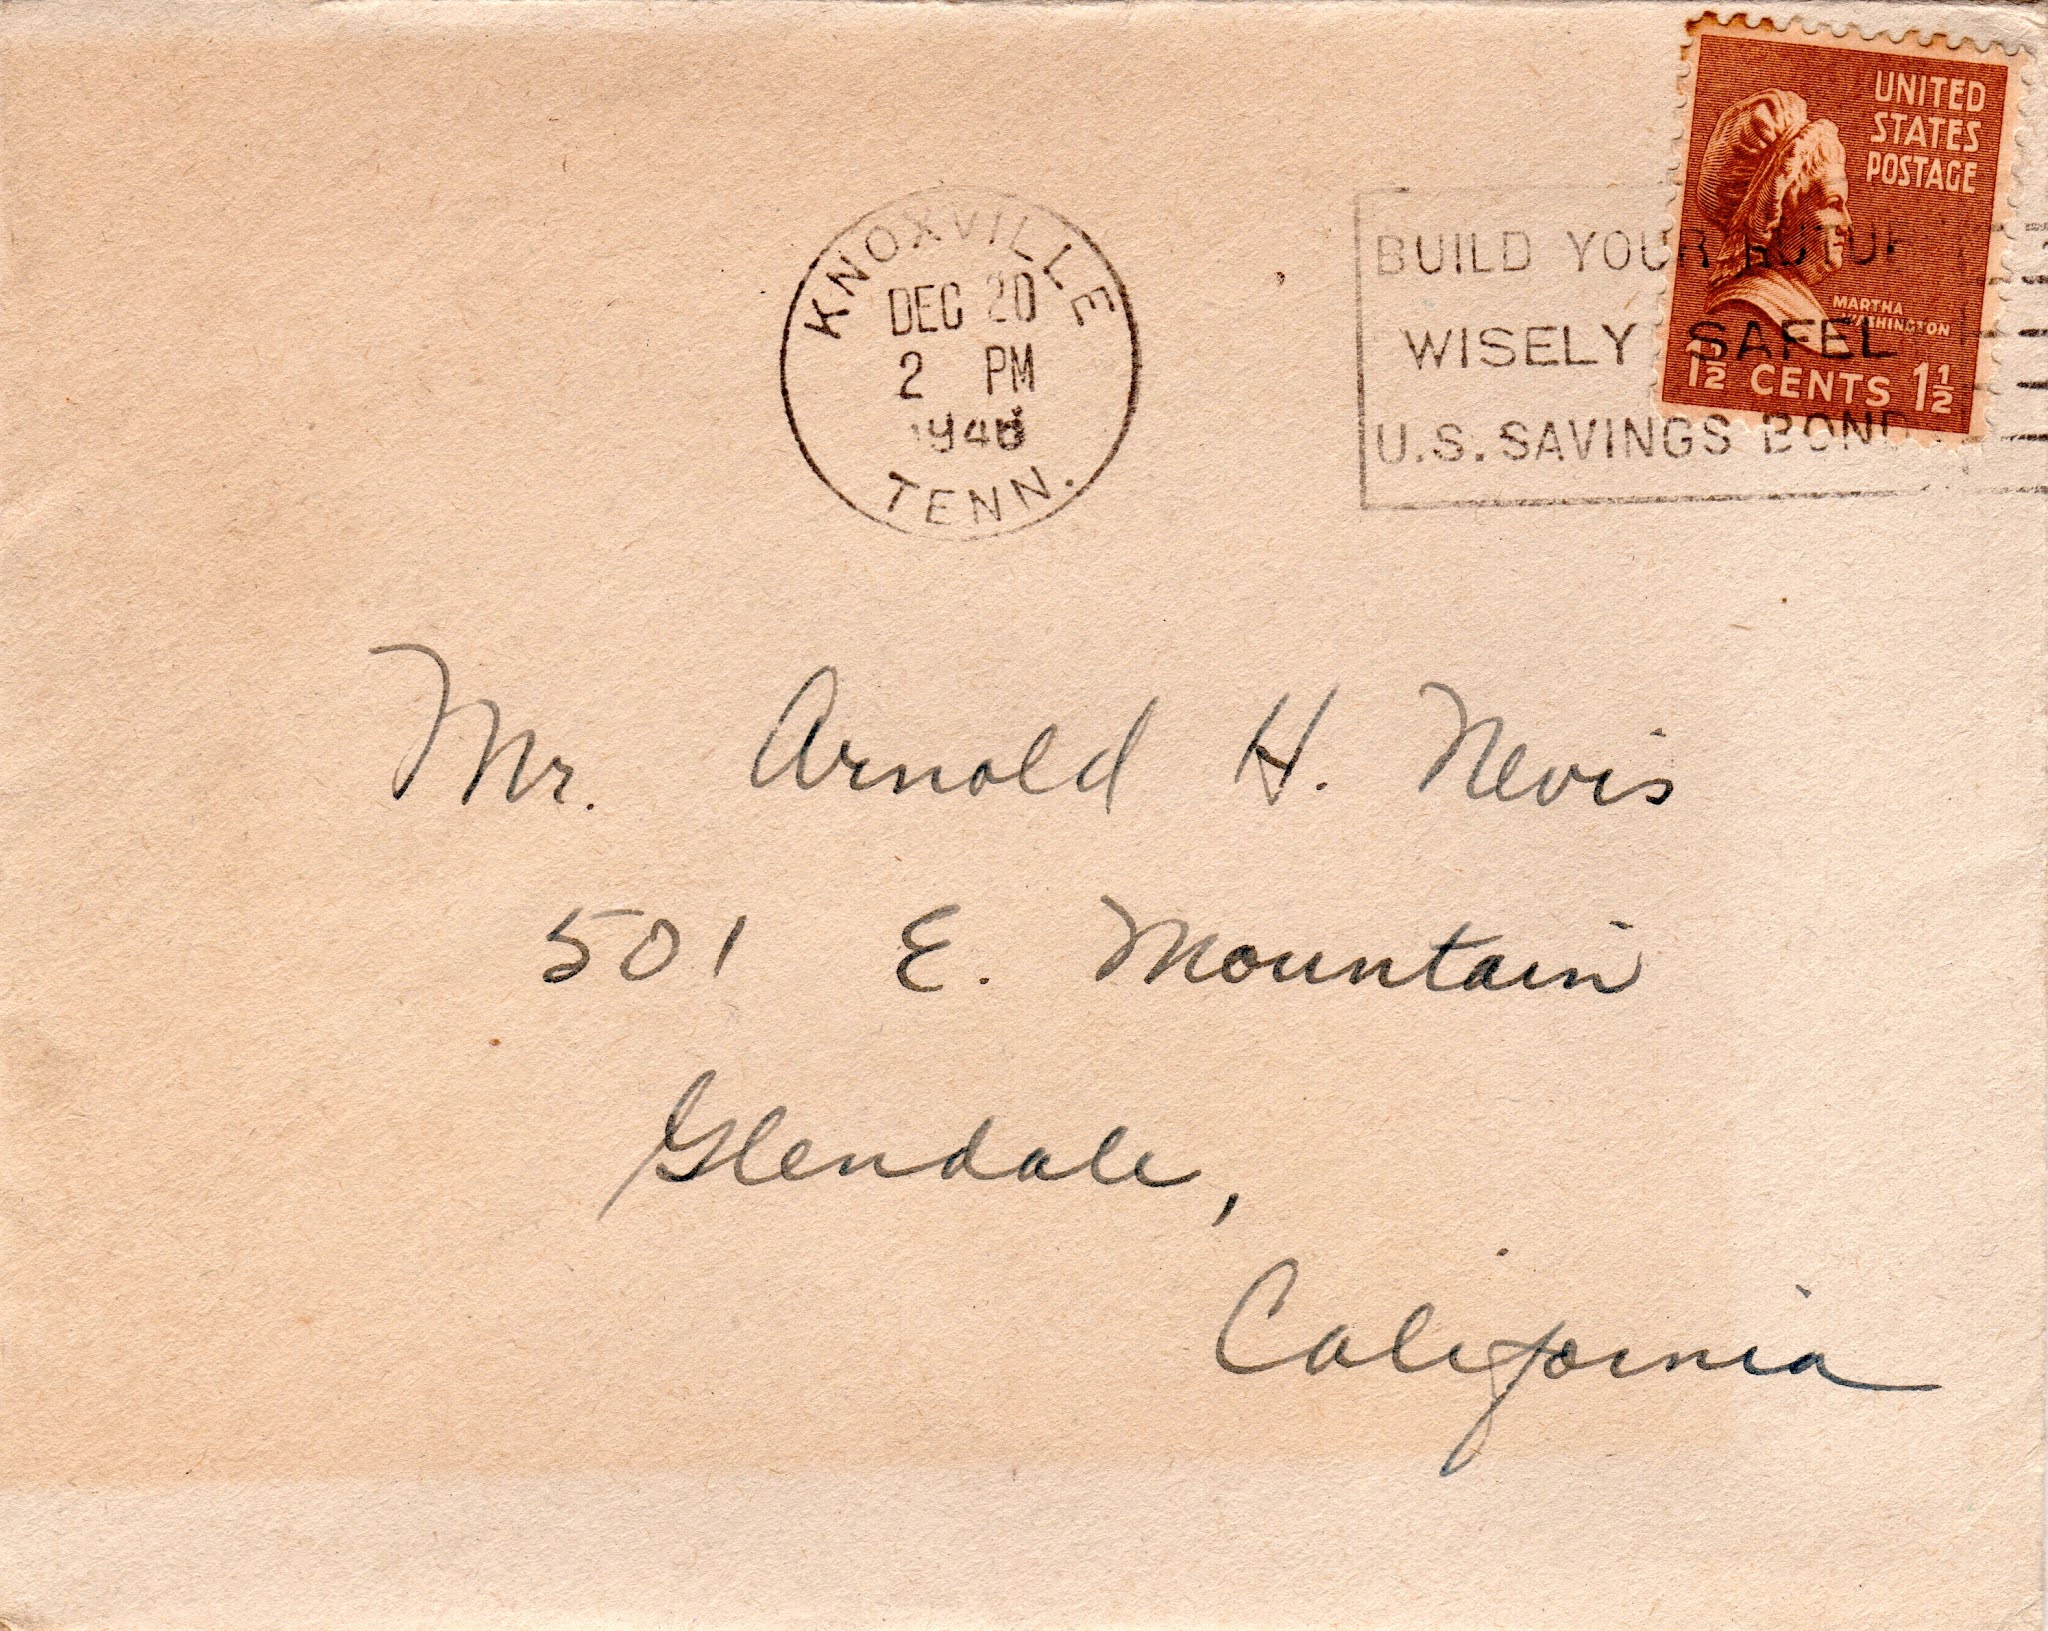 KNOXVILLE
DEC 20
2 PM
TENN.
BUILD YOUR FUTUR
WISELY SAFEL
U.S. SAVINGS BOND
UNITED
STATES
POSTAGE
MARTHA
WASHINGTON
1½ CENTS 1½
Mr. Arnold H. Nevis
501 E. Mountain
Glendale,
California